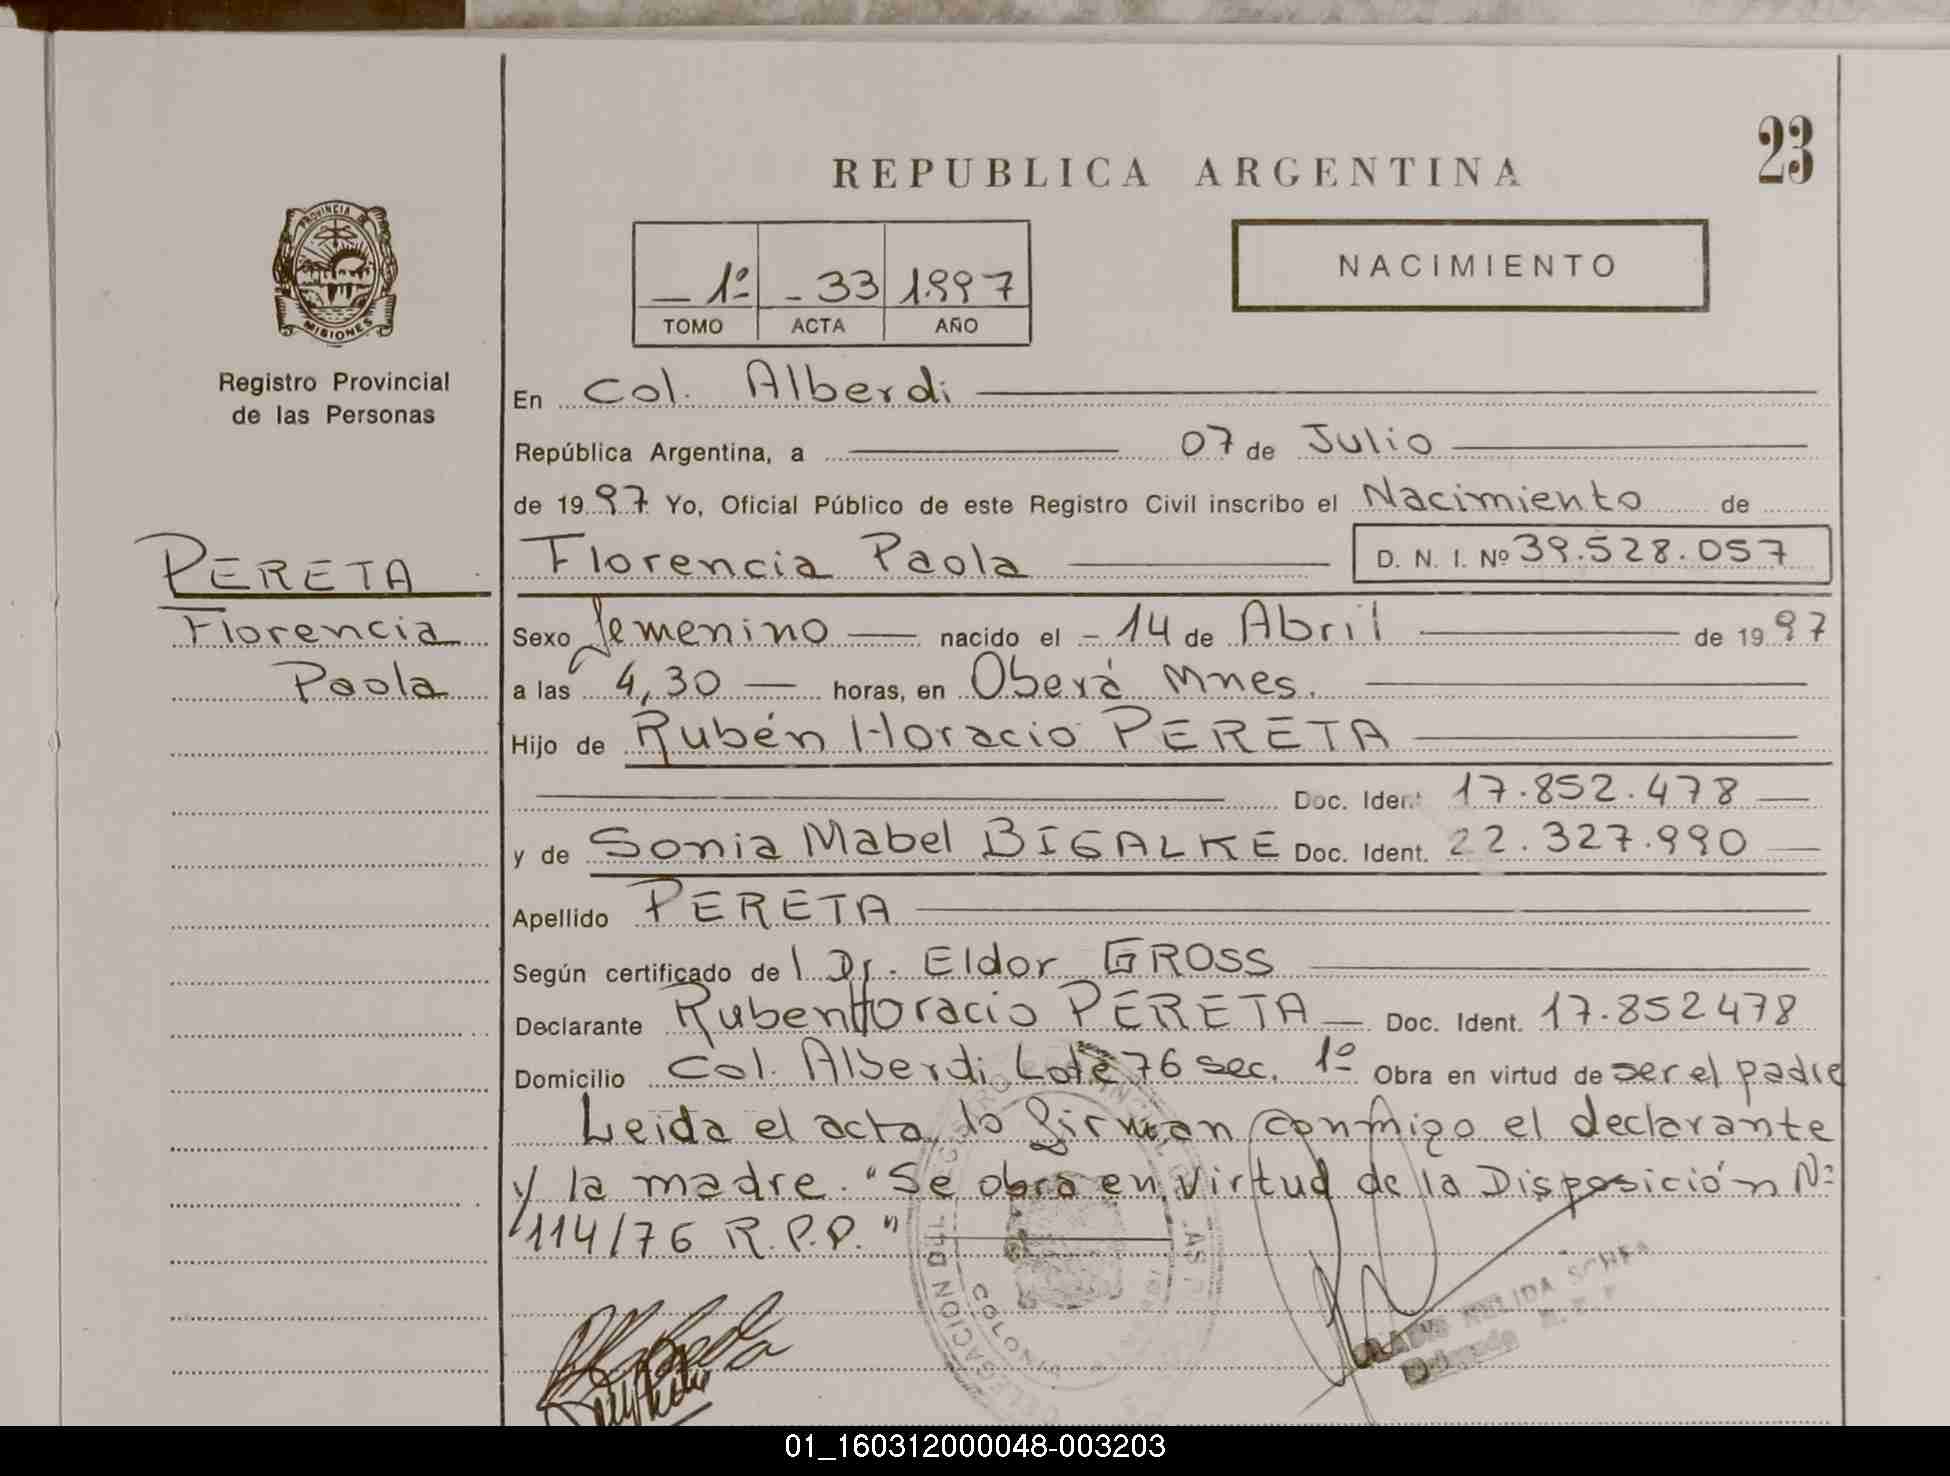 REPUBLICA ARGENTINA
23
PROVINCIA DE
MISIONES
Registro Provincial
de las Personas
1º 33 1997
TOMO ACTA AÑO
NACIMIENTO
En Col. Alberdi
República Argentina, a 07 de Julio
de 1997 Yo, Oficial Público de este Registro Civil inscribo el Nacimiento de
PERETA
Florencia Paola D. N. I. Nº 39.528.057
Florencia
Paola
Sexo femenino nacido el 14 de Abril de 1997
a las 4,30 horas, en Oberá Mnes.
Hijo de Rubén Horacio PERETA
Doc. Ident 17.852.478
y de Sonia Mabel BIGALKE Doc. Ident. 22.327.990
Apellido PERETA
Según certificado de l Dr. Eldor GROSS
Declarante Ruben Horacio PERETA Doc. Ident. 17.852478
Domicilio Col. Alberdi Lote 76 sec. 1º Obra en virtud de ser el padre
Leida el acta, lo firman conmigo el declarante
y la madre. "Se obra en virtud de la Disposición Nº
114/76 R.P.P."
01_160312000048-003203